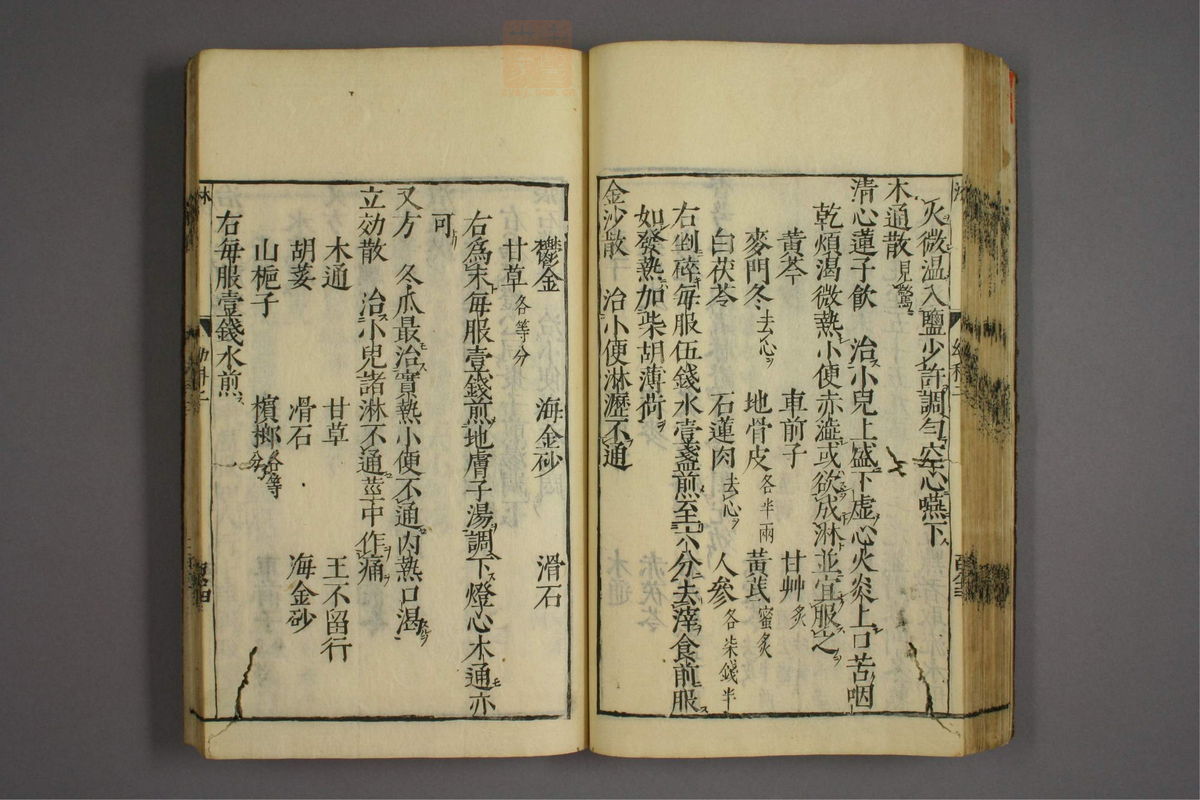 火微温入鹽少許調勻空心嚥下
木通散見驚
清心蓮子飲　治小兒上盛下虚心火炎上口苦咽
乾煩渴微熱小便赤澁或欲成淋並宜服之
黄芩　車前子　甘艸炙
麥門冬去心　地骨皮各半兩　黄芪蜜炙
白茯苓　石蓮肉去心　人參各柒錢半
右剉碎每服伍錢水壹盞煎至六分去滓食前服
如發熱加柴胡薄荷
金沙散　治小便淋瀝不通
鬱金　海金砂　滑石
甘草各等分
右爲末每服壹錢煎地膚子湯調下燈心木通亦
可
又方　冬瓜最治實熱小便不通内熱口渴
立効散　治小兒諸淋不通莖中作痛
木通　甘草　王不留行
胡荽　滑石　海金砂
山梔子　檳榔各等分
右每服壹錢水煎